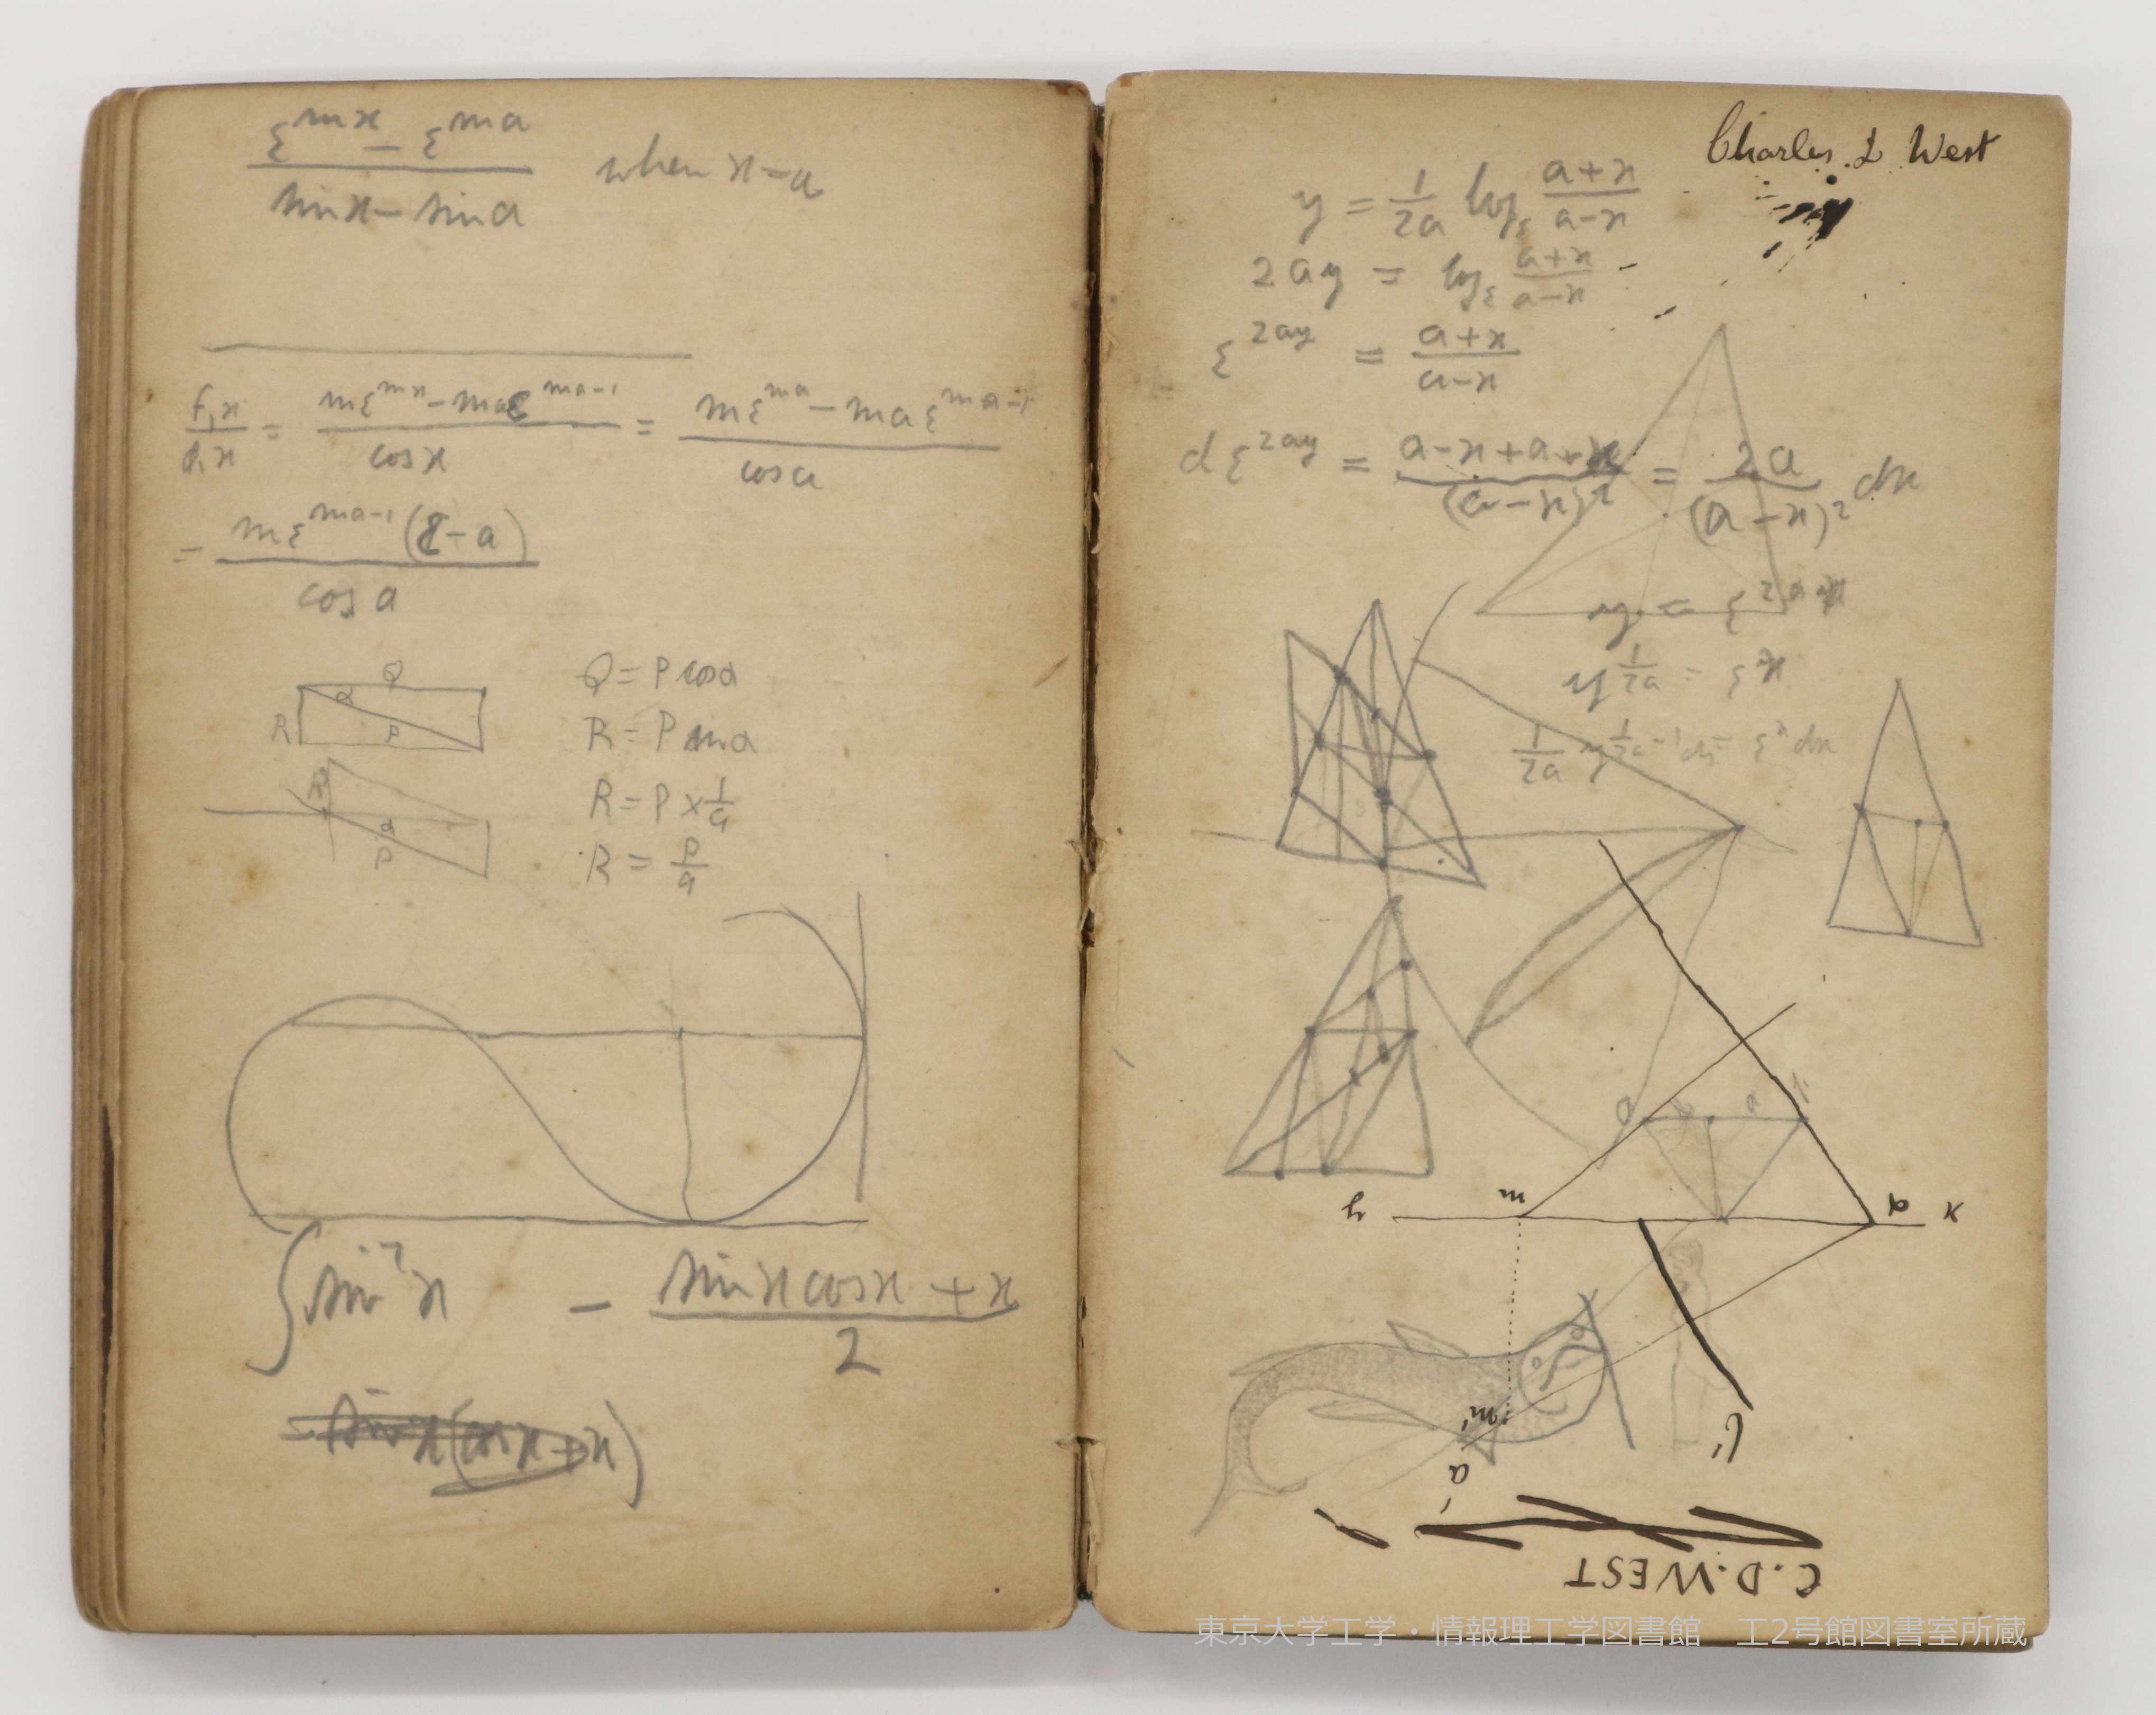 ε^{mx} − ε^{ma} / sin x − sin a when x = a
f,x / = mε^{mx} − maε^{ma−1} / cos x = mε^{ma} − maε^{ma−1} / cos a
= mε^{ma−1}(ε − a) / cos a
Q
α
R P
Q = P cos α
R = P sin α
R = P × 1/a
R = P/a
R
α
P
∫ sin² x − sin x cos x + x / 2
sin x (cos x + x)
Charles D West
y = 1/2a log_ε a+x / a−x
2ay = log_ε a+x / a−x
ε^{2ay} = a+x / a−x
d ε^{2ay} = a−x+a+x / (a−x)² = 2a / (a−x)² dx
y = ε^{2ax}
y^{1/2a} = ε^x
1/2a y^{1/2a −1} dy = ε^x dx
y m a x
m'
a'
l'
C.D.WEST
東京大学工学・情報理工学図書館 工2号館図書室所蔵